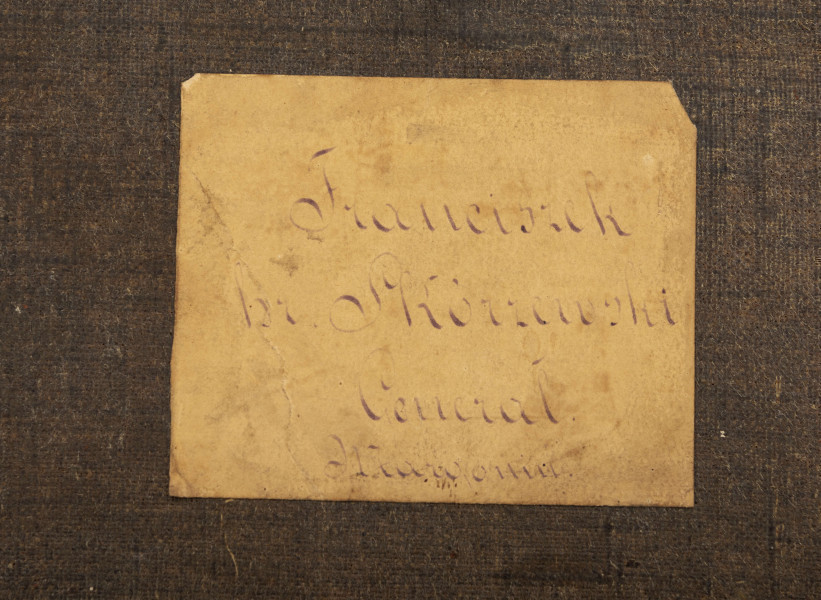 Franciszek
hr. Skórzewski
General.
Margonin.